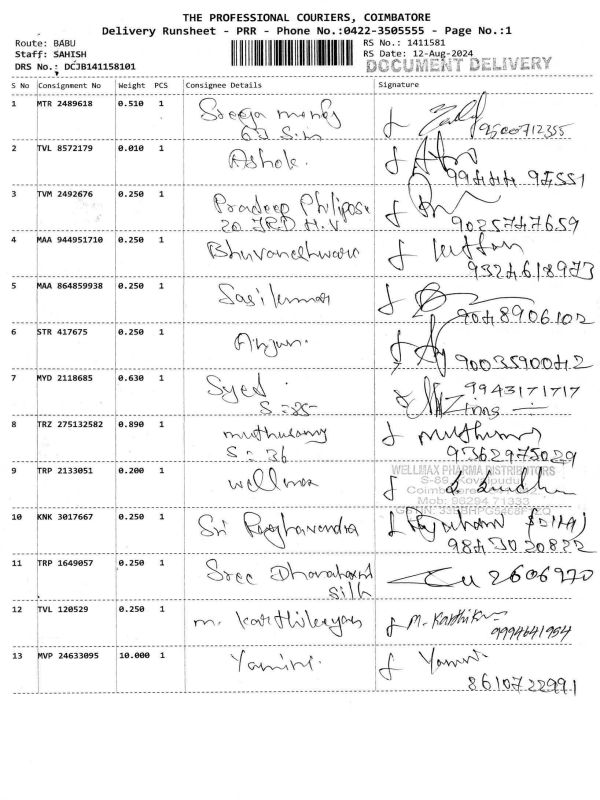 THE PROFESSIONAL COURIERS, COIMBATORE
Delivery Runsheet - PRR - Phone No.:0422-3505555 - Page No.:1
Route: BABU RS No.: 1411581
Staff: SAHISH RS Date: 12-Aug-2024
DRS No.: DCJB141158101 DOCUMENT DELIVERY
S No Consignment No Weight PCS Consignee Details Signature
1 MTR 2489618 0.510 1 Sreeja
9500712355
2 TVL 8572179 0.010 1 Ashok.
99444 97551
3 TVM 2492676 0.250 1 Pradeep Philipose
9025747659
4 MAA 944951710 0.250 1 Bhuvaneshwari
9324618973
5 MAA 864859938 0.250 1 Sasikumar
9048906102
6 STR 417675 0.250 1 Arjun.
9003590042
7 MYD 2118685 0.630 1 Syed. 9943171717
8 TRZ 275132582 0.890 1 muthusamy
S = 36 9362975029
9 TRP 2133051 0.200 1 wellmax WELLMAX PHARMA DISTRIBUTORS
Mob: 96294 71333
10 KNK 3017667 0.250 1 Sri Raghavendra
9843020822
11 TRP 1649057 0.250 1 Sree 2606970
Silk
12 TVL 120529 0.250 1 m. Karthikeyan M. Karthik
9994641954
13 MVP 24633095 10.000 1 Yamini. Yamini
8610722991